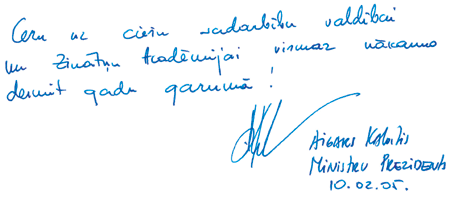 Ceru uz ciešu sadarbību valdībai
un Zinātņu Akadēmijai vismaz nākamo
desmit gadu garumā!
AIGARS KALVĪTIS
MINISTRU PREZIDENTS
10.02.05.